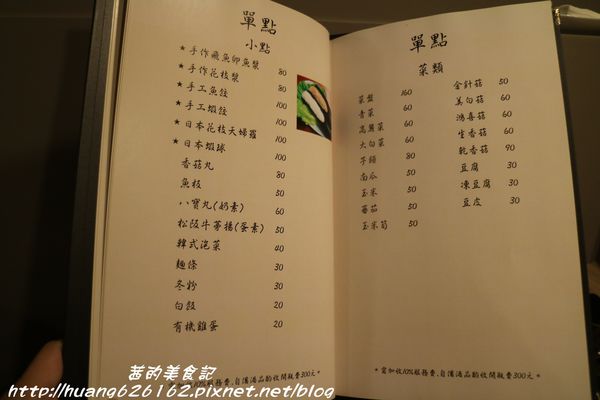 單點
小點
* 手作飛魚卵魚漿 80
* 手作花枝漿 80
* 手工魚餃 100
* 手工蝦餃 100
* 日本花枝天婦羅 100
* 日本蝦球 100
香菇丸 80
魚板 50
八寶丸(奶素) 60
松阪牛蒡捲(蛋素) 50
韓式泡菜 40
麵條 30
冬粉 30
白飯 20
有機雞蛋 20
單點
菜類
菜盤 160
青菜 60
高麗菜 60
大白菜 60
芋頭 80
南瓜 50
玉米 50
蕃茄 50
玉米筍 50
金針菇 50
美白菇 60
鴻喜菇 60
生香菇 60
乾香菇 90
豆腐 30
凍豆腐 30
豆皮 30
服務費,自備酒品酌收開瓶費300元 *
* 需加收10%服務費,自備酒品酌收開瓶費300元 *
茜的美食記
http://huang626162.pixnet.net/blog